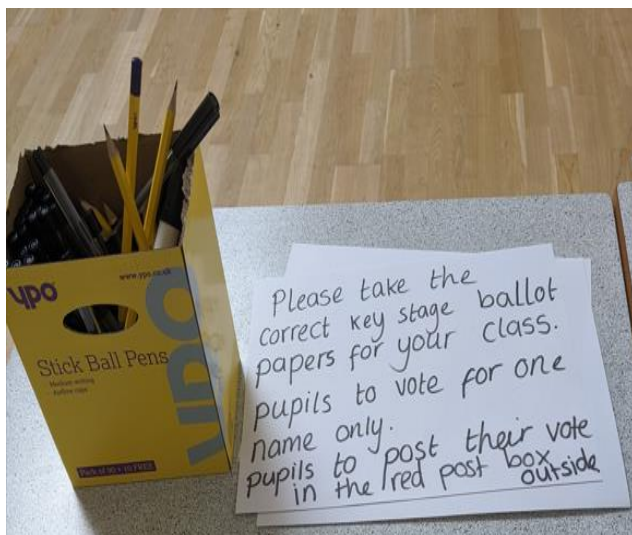 ypo
www.ypo.co.uk
YPO
Stick Ball Pens
Medium writing
Please take the
correct key stage ballot
papers for your class.
pupils to vote for one
name only.
pupils to post their vote
in the red post box
outside